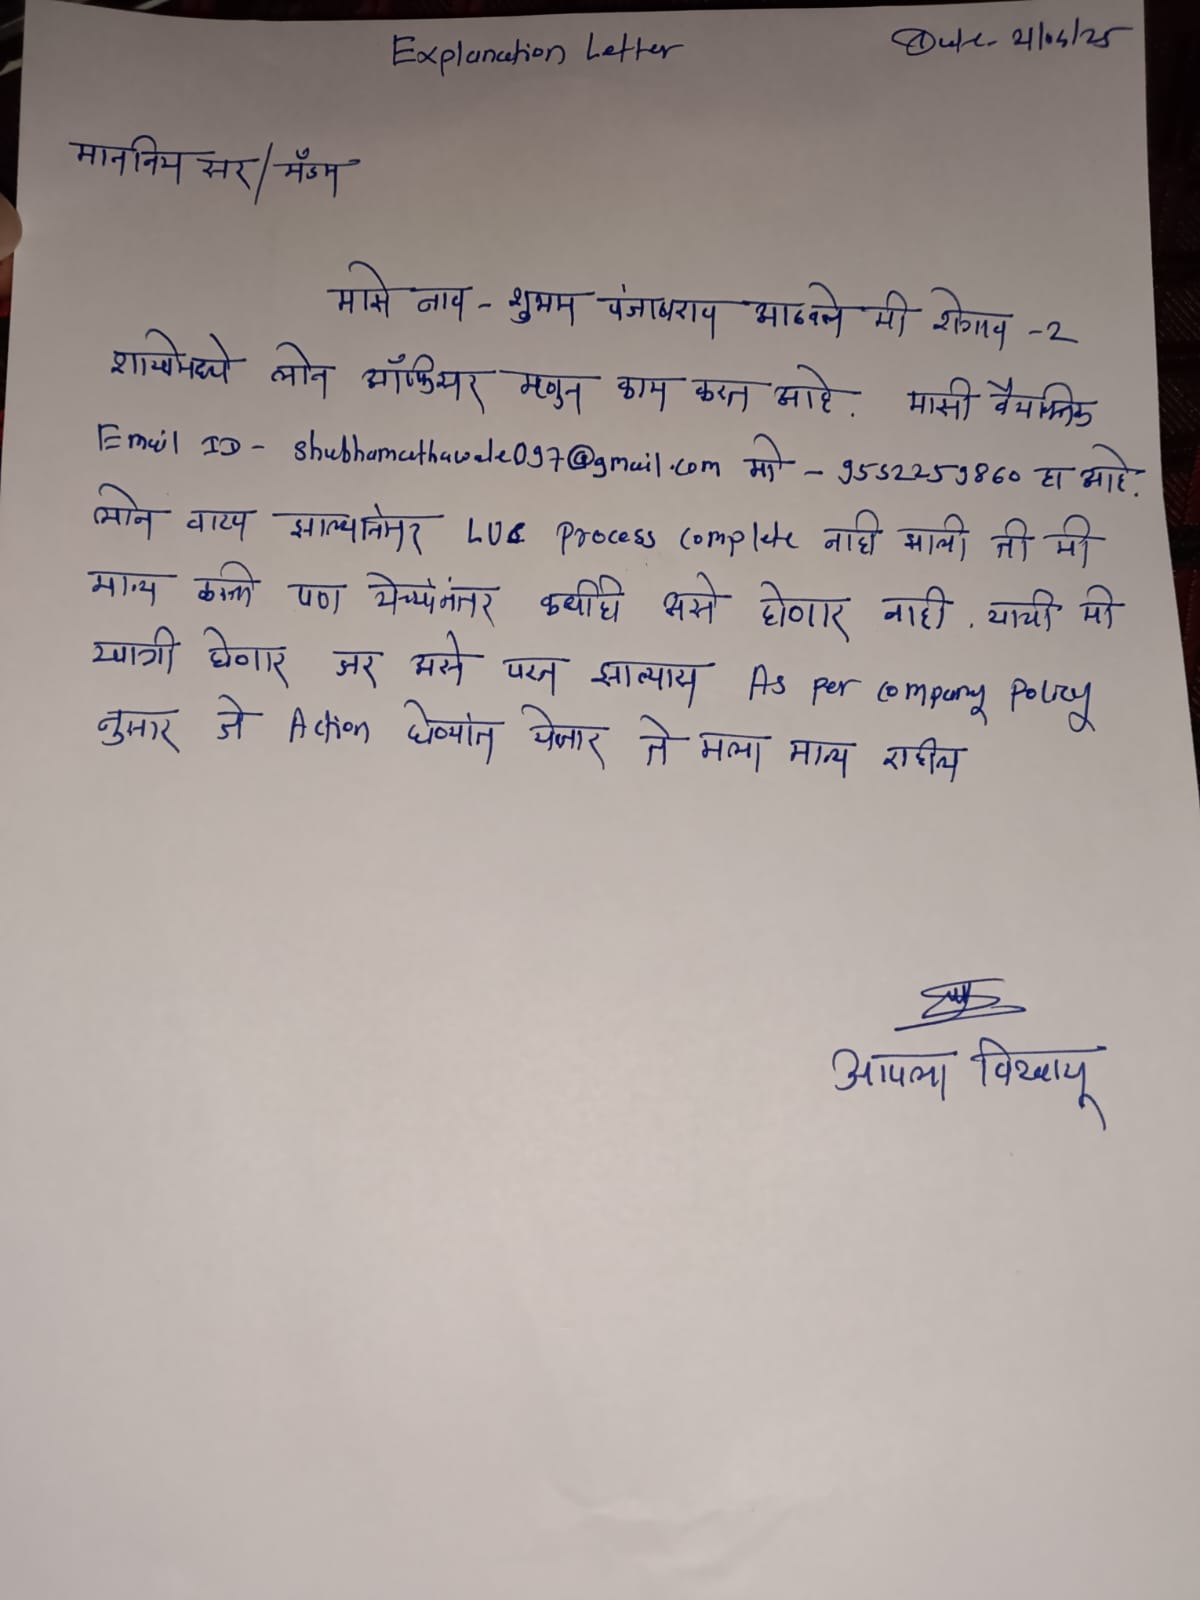 Explanation Letter
Date- 21/04/25
माननिय सर/मॅडम
माझे नाव - शुभम पंजाबराव आठवले मी शेगाव -2
शाखेमध्ये लोन ऑफिसर म्हणुन काम करत आहे. माझी वैयक्तिक
Email ID - shubhamathawale097@gmail.com मो - 9552259860 हा आहे.
लोन वाटप झाल्यानंतर LUC Process complete नाही झाली ती मी
मान्य करतो पण येच्यानंतर कधीहि असे होणार नाही. याची मी
खात्री घेणार जर असे परत झाल्यास As per company policy
नुसार जे Action घेण्यांत येणार ते मला मान्य राहील
आपला विश्वासू